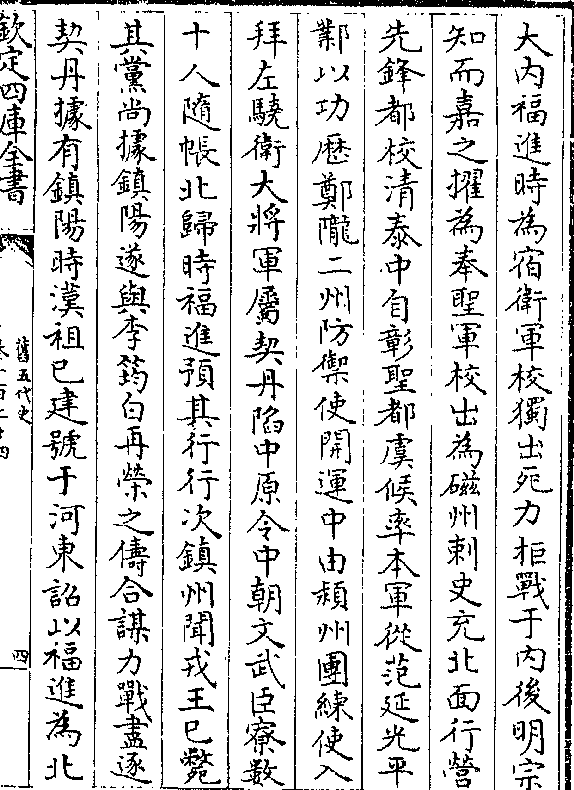 大内福進時為宿衛軍校獨出死力拒戰于内後明宗
知而嘉之擢為奉聖軍校出為磁州刺史充北面行營
先鋒都校清泰中自彰聖都虞候率本軍從范延光平
鄴以功歷鄭隴二州防禦使開運中由潁州團練使入
拜左驍衛大將軍屬契丹陷中原令中朝文武臣寮數
十人隨帳北歸時福進預其行行次鎮州聞戎王已斃
其黨尚據鎮陽遂與李筠白再榮之儔合謀力戰盡逐
契丹據有鎮陽時漢祖已建號于河東詔以福進為北
欽定四庫全書
舊五代史
卷一百二十四
四